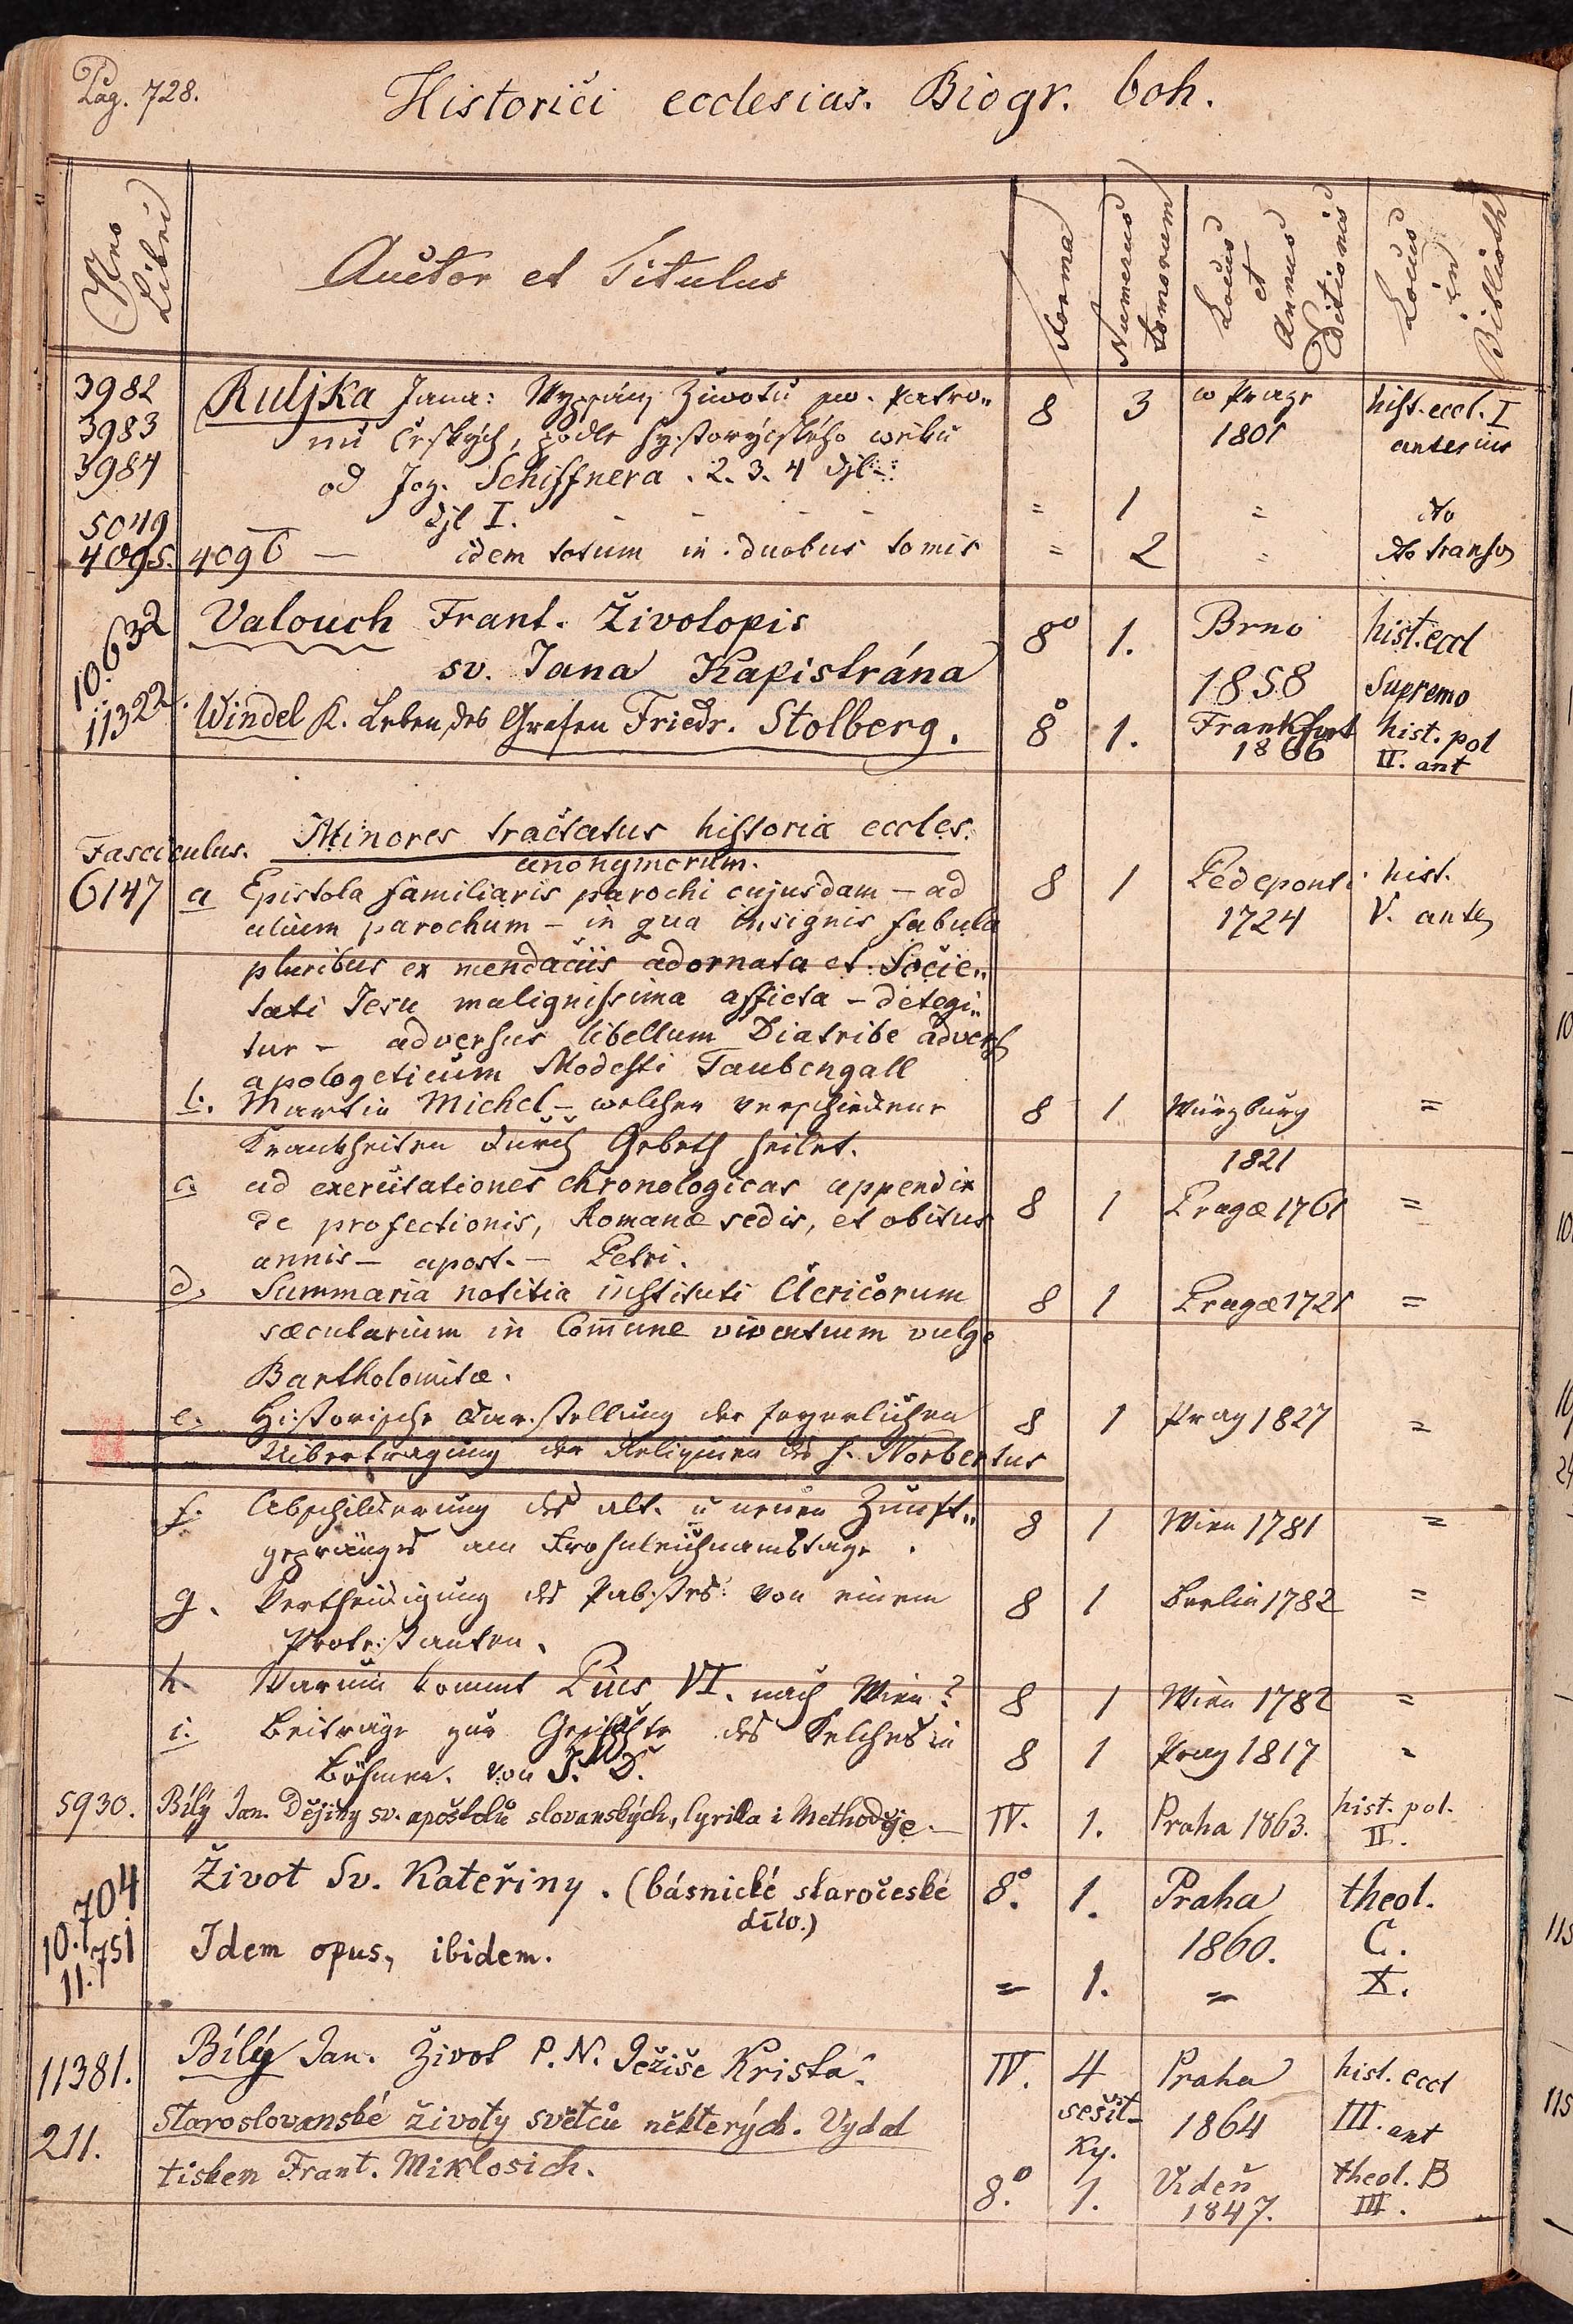 Pag. 728.
Historici ecclesias. Biogr. boh.
Nrus Libri
Auctor et Titulus
Forma
Numerus tomorum
Locus et Annus Editionis
Locus in Biblioth
3982 Ruljka Jana: Wypsánj Žiwotů sw. Patro„ 8 3 w Praze hist. eccl. I
3983 nů Českých, podle hystorýckého wěku 1801 anterius
3984 od Joz. Schiffnera . 2. 3. 4 djl
5049 djl I. - - - - = 1 = dto
4095. 4096 — idem totum in duobus tomis = 2 = dto transv
10.632 Valouch Frant. Životopis 8o 1. Brno hist. eccl
sv. Jana Kapistrána 1858 Supremo
11322. Windel K. Leben des Grafen Friedr. Stolberg. 8o 1. Frankfurt hist. pol
1866 II. ant
Minores tractatus historiæ eccles.
Fasciculus. anonymorum.
6147 a Epistola familiaris parochi cujusdam – ad 8 1 Pedeponti hist.
alium parochum – in qua insignis fabula 1724 V. ante
pluribus ex mendaciis adornata et Socie„
tati Jesu malignissima afficta – detegi„
tur – adversus libellum Diatribe advers
apologeticum Modesti Taubengall
b. Martin Michel – welcher verschiedene 8 1 Würzburg =
Krankheiten durch Gebeth heilet. 1821
c. ad exercitationes chronologicas appendix
de profectionis, Romanæ sedis, et obitus 8 1 Pragæ 1761 =
annis – apost. – Petri.
d. Summaria notitia instituti Clericorum 8 1 Pragæ 1721 =
sæcularium in Commune viventium vulgo
Bartholomitæ.
e. Historische Darstellung der feyerlichen 8 1 Prag 1827 =
Uibertragung der Reliquien des h. Norbertus
f. Abschilderung des alt. u neuen Zunft„ 8 1 Wien 1781 =
gepränges am Frohnleichnamstage .
g. Vertheidigung des Pabstes von einem 8 1 Berlin 1782 =
Protestanten.
h. Warum kommt Pius VI. nach Wien? 8 1 Wien 1782 =
i. Beiträge zur Geschichte des Kelches in 8 1 Prag 1817 =
Böhmen. von J. W. D.
5930. Bílý Jan. Dějiny sv. apoštolů slovanských, Cyrilla i Methoděje. — IV. 1. Praha 1863. hist. pol.
II.
10.704 Život Sv. Kateřiny. (básnické staročeské 8o. 1. Praha theol.
dílo.) 1860. C.
11.751 Idem opus, ibidem. = 1. = X.
11381. Bílý Jan. Život P. N. Ježíše Krista. IV. 4 Praha hist. eccl
sešit-
ky. 1864 III. ant
211. Staroslovanské životy světců některých. Vydal
tiskem Frant. Miklosich. 8.o 1. Videň theol. B
1847. III.